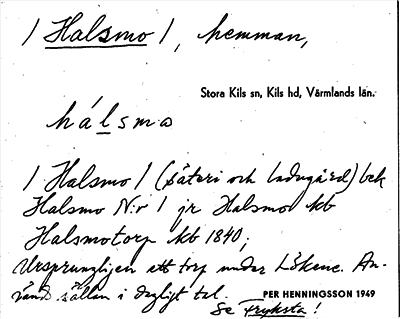 / Halsmo /, hemman,
Stora Kils sn, Kils hd, Värmlands län.
hálsmo
/ Halsmo / (säteri och ladugård) bek
Halsmo N:r 1 jr Halsmo kb
Halsmotorp kb 1840;
Ursprungligen ett torp under Lökene. An-
vänd. sällan i dagligt tal.
PER HENNINGSSON 1949
Se Fryksta!